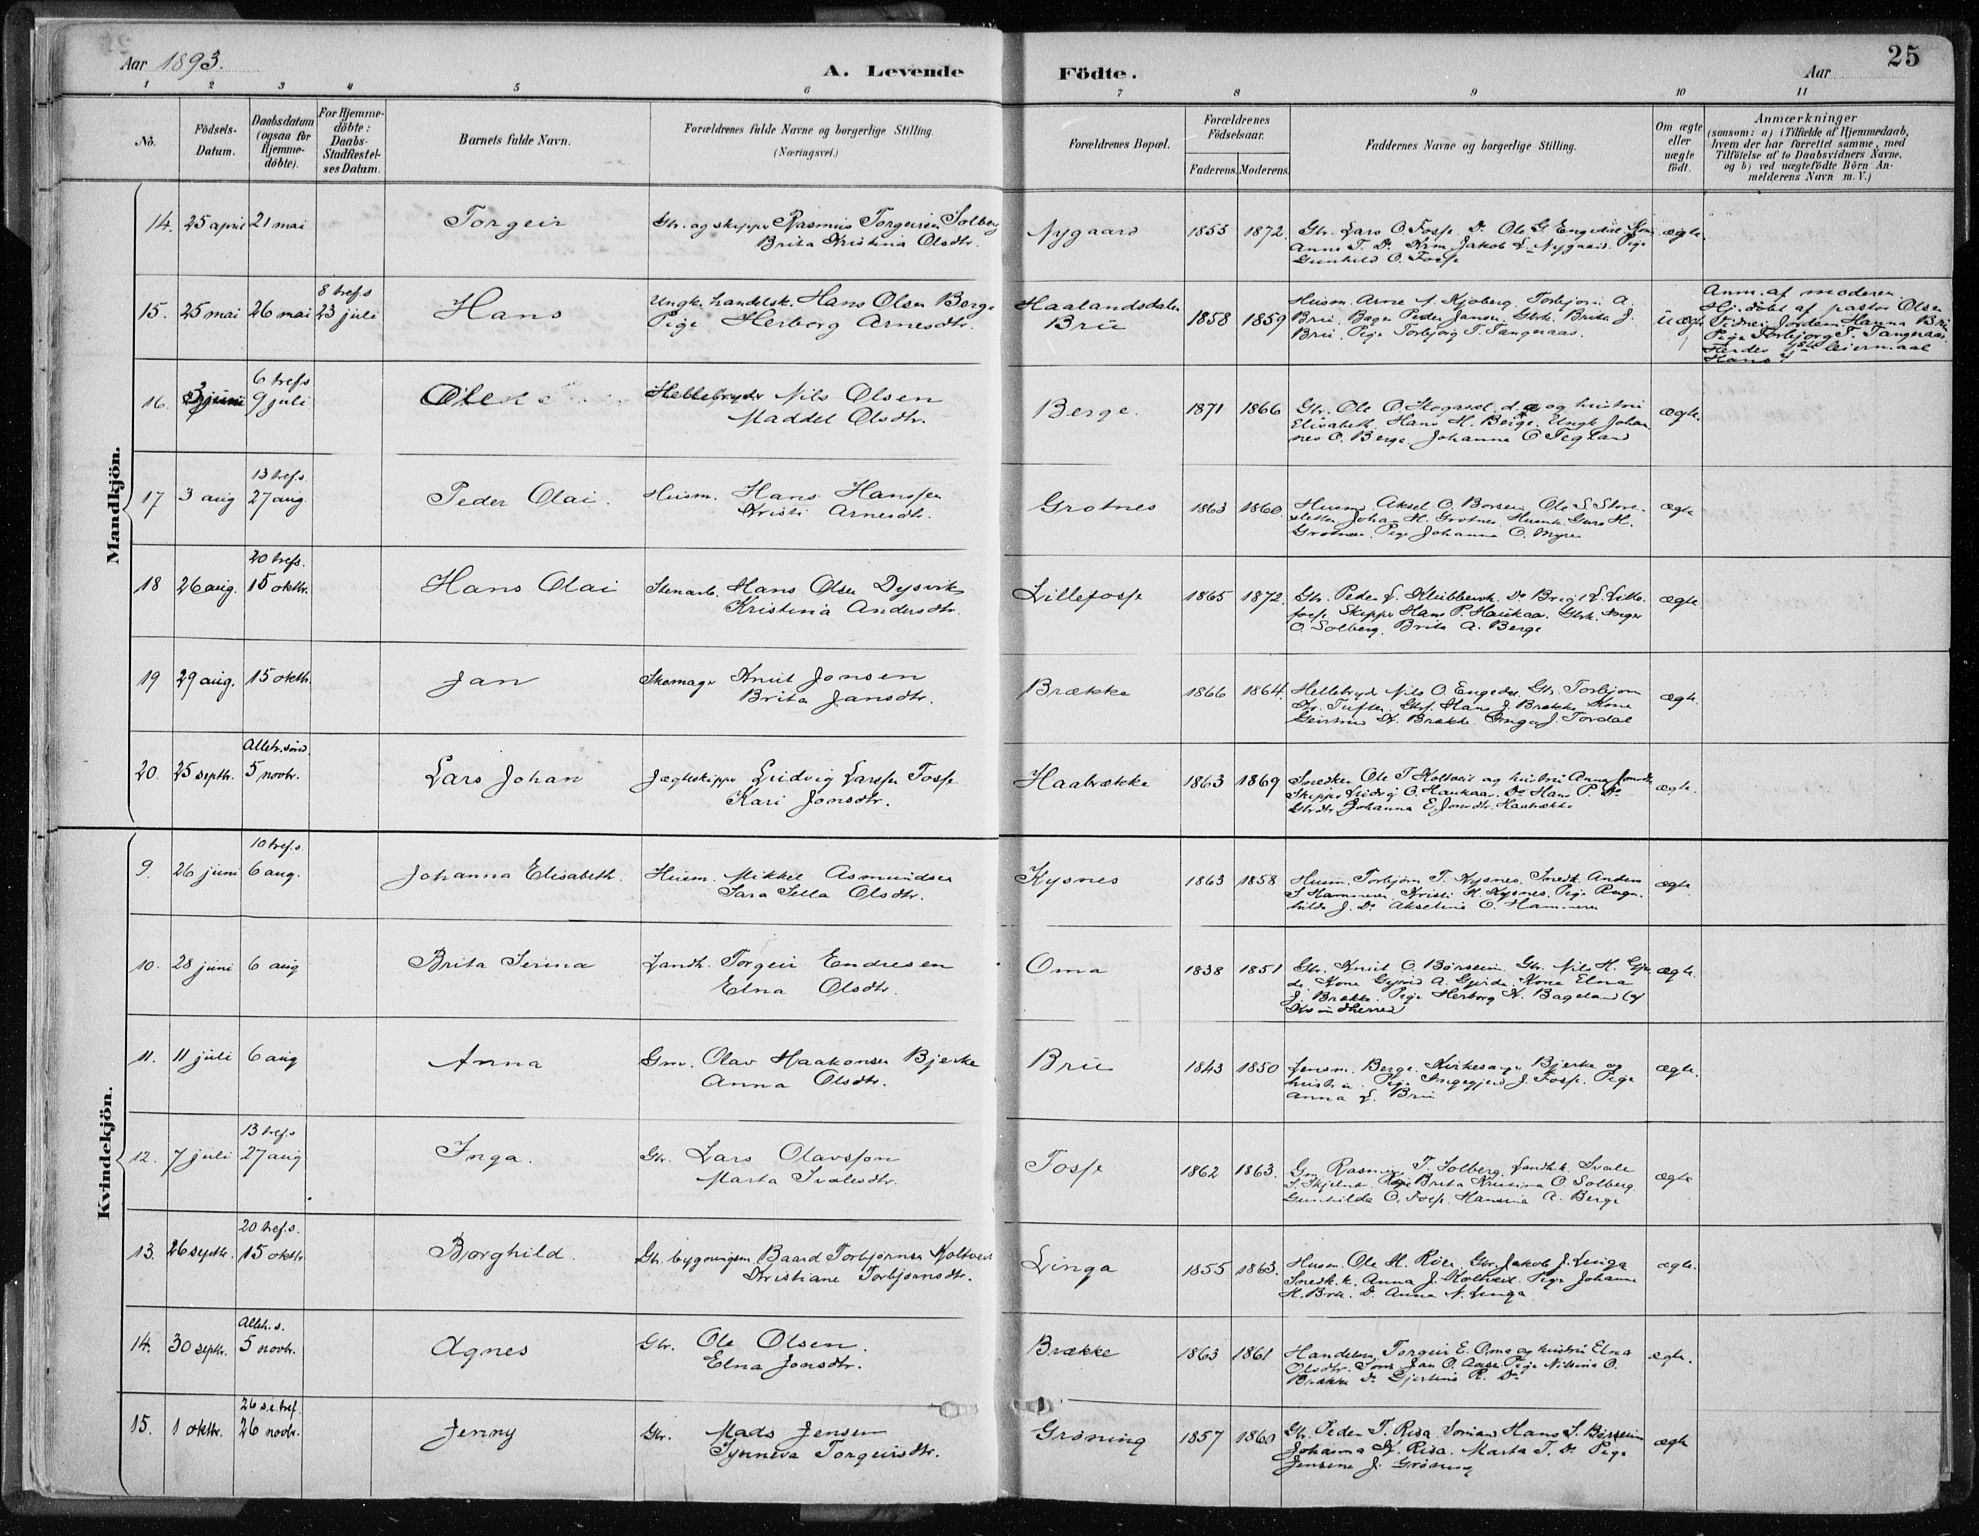 Aar 1893.
A. Levende
Födte.
Aar
25
1 2 3 4 5 6 7 8 9 10 11
No.
Födsels-
Datum.
Daabsdatum
(ogsaa for
Hjemme-
döbte).
For Hjemme-
döbte:
Daabs-
Stadfæstel-
ses Datum.
Barnets fulde Navn.
Forældrenes fulde Navne og borgerlige Stilling.
(Næringsvei.)
Forældrenes Bopæl.
Forældrenes
Födselsaar.
Faderens. Moderens.
Faddernes Navne og borgerlige Stilling.
Om ægte
eller
uægte
födt.
Anmærkninger
(saasom: a) i Tilfælde af Hjemmedaab,
hvem der har forrettet samme, med
Tilföielse af to Daabsvidners Navne.
og b) ved uægtefödte Börn An-
melderens Navn m. V.)
Mandkjön.
14. 25 april 21 mai Torgeir
Gbr. og skipper Rasmus Torgeirsen Solberg
Brita Kristina Olsdtr.
Nygaard 1855 1872.
Gbr. Lars O. Fosse. Do Ole G. Engedal Kone
Anna T. Do Krm Jakob L. Nygaard. Pige
Gunhild O. Fosse
ægte.
15. 25 mai 26 mai
8 tref.s
23 juli
Hans
Ungk. handelsk. Hans Olsen Berge
Pige Herborg Arnesdtr.
Haalandsdalen
Brú 1858 1859
Husm. Arne N. Kjoberg. Torbjørn A.
Brú. Bager Peder Jansen. Gbrk. Brita J.
Brú. Pige Torbjørg T. Tangeraas.
uægte
Anm. af moderen
Hj. døbt af pastor Olsen
Vidner: Jordem. Hanna Brú
Pige Torbjørg T. Tangeraas
leiermaal
Hans
16.
6 tref.s
3 juni 9 juli
Ole
Hellebryder Nils Olsen
Maddel Olsdtr.
Berge. 1871 1866
Gbr. Ole O. Skogasel d.æ og hustru
Elisabeth. Hans H. Berge. Ungk Johan-
nes O. Berge. Johanna O Tegland
ægte.
17
13 tref.s
3 aug 27 aug.
Peder Olai.
Husm. Hans Hanssen
Kristi Arnesdtr.
Grotnes 1863 1860.
Husm Aksel O. Borsen. Ole S. Store-
sletten Johan H. Grotnes. Husmk. Guro H.
Grotnes. Pige Johanna O. Myre
Ægte
18
20 tref.s.
26 aug. 15 oktbr.
Hans Olai
Stenarb. Hans Olsen Dysvik
Kristina Andersdtr.
Lillefosse 1865 1872.
Gbr. Peder L. Do Brigt L. Lille-
fosse. Skipper Hans P. Haukaas. Gbrk. Inger
O. Solberg. Brita A. Berge
ægte
19 29 aug. 15 oktbr. Jan
Skomager Knut Jonsen
Brita Jansdtr.
Brække 1866 1864.
Hellebryder Nils O. Engedal. Gbr. Torbjørn
Tufte. Gbrs. Hans J. Brække. Kone
Geirtrud K. Brække. Inga J. Tordal
ægte.
20.
Alleh.sønd.
25 septbr. 5 novbr.
Lars Johan
Jagteskipper Ludvig Larssen Fosse
Kari Jonsdtr.
Haabrække 1863 1869
Snedker Ole T. Koltveit og hustru Anna Jonsdtr
Skipper Ludvig O. Haukaas. Do Hans P. Do
Gbrdtr. Johanna E. Jonsdtr. Haabrække
ægte.
Kvindekjön.
9.
10 tref.s
26 juni 6 aug.
Johanna Elisabeth.
Husm. Mikkel Asmundsen
Sara Sella Olsdtr.
Kysnes 1863 1858
Husm. Torbjørn T. Kysnes. Snedk. Anders
S. Hammeren Kristi H. Kysnes. Pige Ragn-
hilda J. Do Akseline O. Hammeren
ægte
10. 28 juni 6 aug Brita Serina
Landh. Torgeir Endresen
Elna Olsdtr.
Oma 1838 1851
Gbr. Knut O. Børsheim. Gbr. Nils H. Gjer-
de. Kone Gyrid A. Gjerde. Kone Elna
J. Brække. Pige Herborg K. Bageland (af
Kvindherred)
ægte.
11. 11 juli 6 aug Anna
Gm. Olav Haakonsen Bjerke
Anna Olsdtr.
Brú 1843 1850
Lensm. Berge. Kirkesanger Bjerke og
hustru. Pige Ingegjerd J. Fosse. Pige
Anna L. Brú
ægte.
12.
13 tref.s
7 juli 27 aug
Inga.
Gbr. Lars Olavsson
Marta Ivalesdtr.
Fosse 1862 1863.
Gm Rasmus T. Solberg. Landh. Svale
S. Skjelnes. Kone Brita Kristina O Solberg.
Gunhilda O. Fosse. Hansina A. Berge
ægte
13.
20 tref.s.
26 septbr. 15 oktbr
Borghild.
Gbr. bygningsm Baard Torbjørnsen Koltveit
Kristiane Torbjørnsdtr.
Linga 1855 1863.
Husm. Ole M. Røen Gbr. Jakob J. Linga
Snedk. k. Anna J. Koltveit. Pige Johanna
H. Brú. D. Anna N. Linga
ægte.
14.
Alleh. s.
30 septbr. 5 novbr.
Agnes
Gbr. Ole Olsen.
Elna Jonsdtr.
Brække 1863 1861
Handelsm Torgeir E. Oma og hustru Elna
Olsdtr. Jan O. Aase. Pige Nilsina O.
Brække Do Gjertine R. Do
ægte.
15.
26 s.e. tref.
1 oktbr. 26 novbr.
Jenny
Gbr. Mads Jensen
Synneva Torgeirsdtr.
Grøning 1857 1860
Gbr. Peder T. Risa Hans S. Børsheim
Johanna N. Risa. Marta T. Do Pige
Jensine J. Grøning
ægte